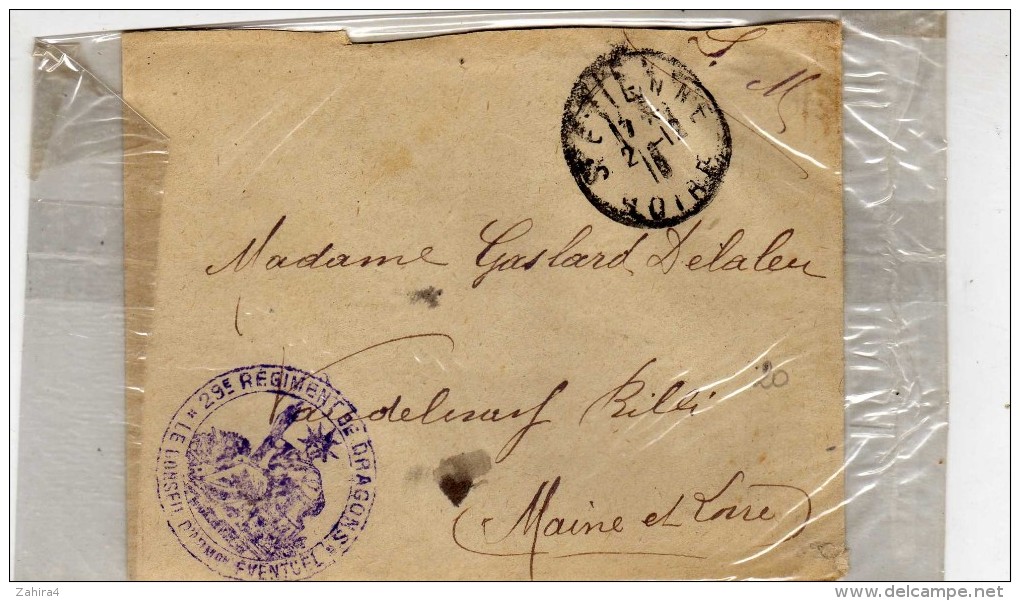 S. M
ST ETIENNE
LOIRE
Madame Gaslard Délaleu
20
Rillé
(Maine et Loire)
* 29E REGIMENT DE DRAGONS * LE CONSEIL D'ADMON EVENTUEL
Zahira4
delcampe.net